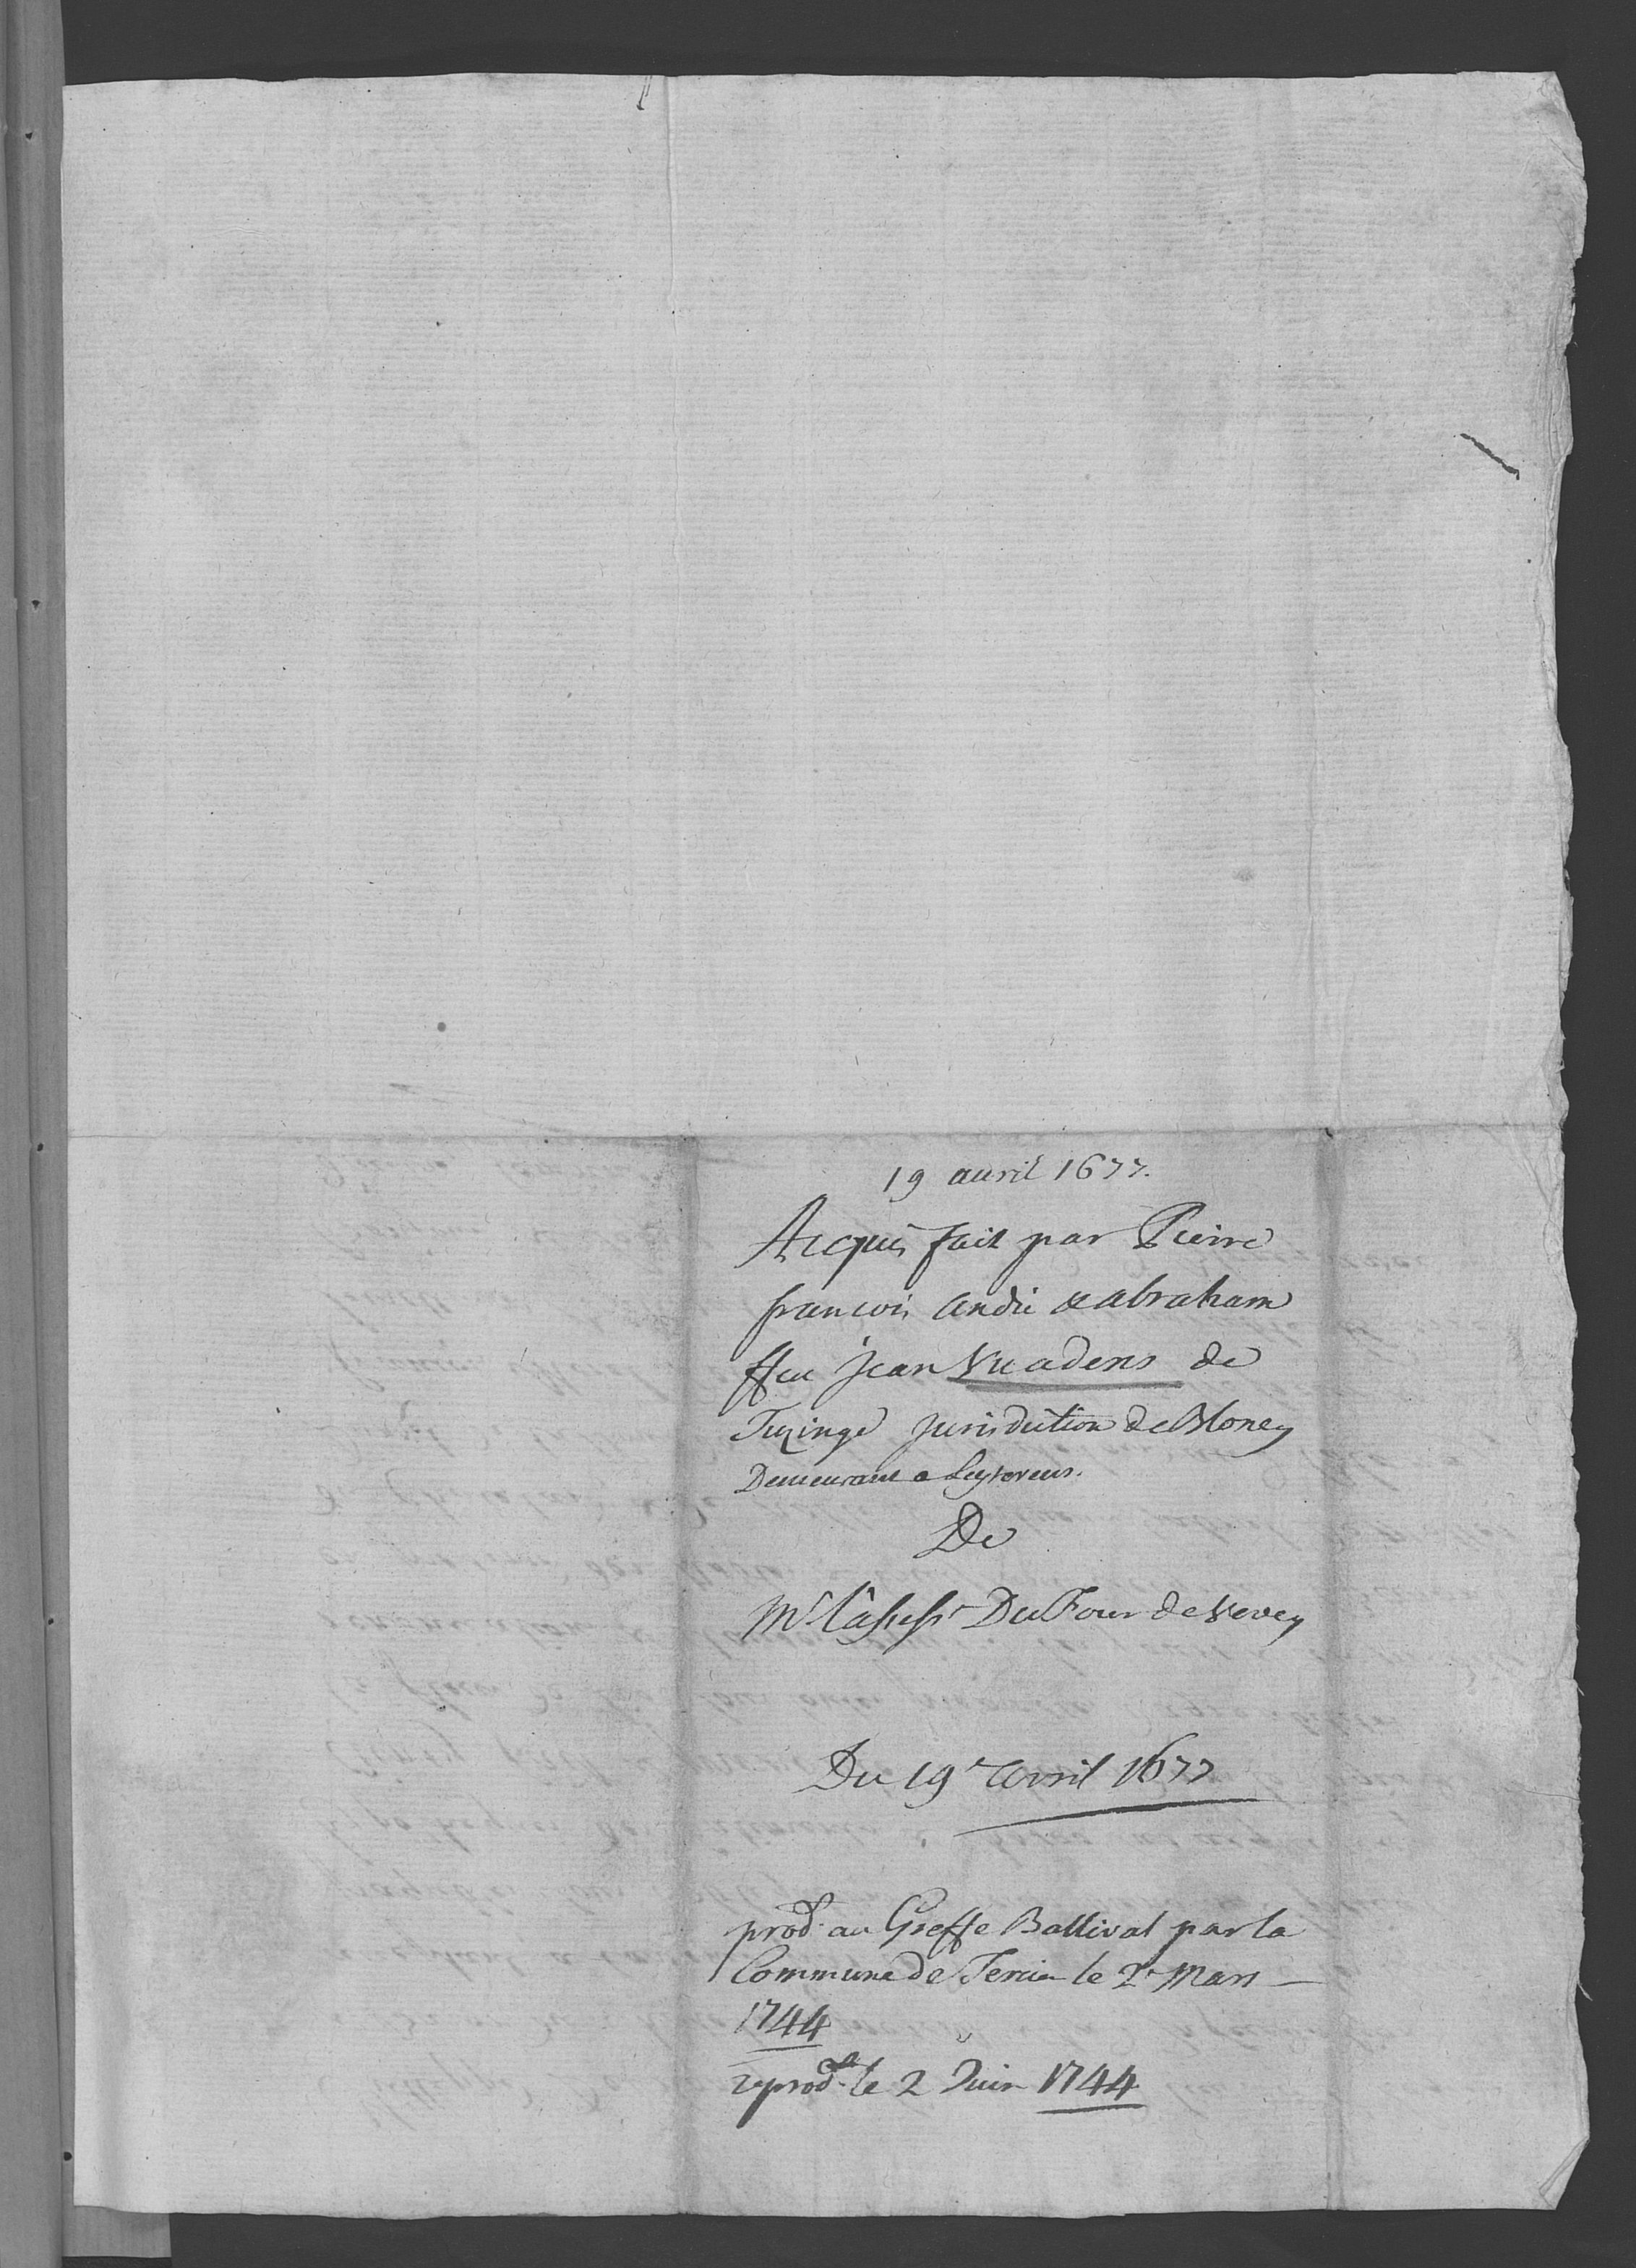 19 auril 1677.
Acquis fait par Pierre
francois André & abraham
ffeu Jean Vuadens de
Tuzinge Jurisdiction de Bloney
Demeurant a Leytoreus.
De
Mr. l'assessr. Du Four de Vevey
Du 19e. avril 1677
prod. au Greffe Ballival par la
Commune de Tercier le 2e Mars
1744
reprod. le 2 Juin 1744